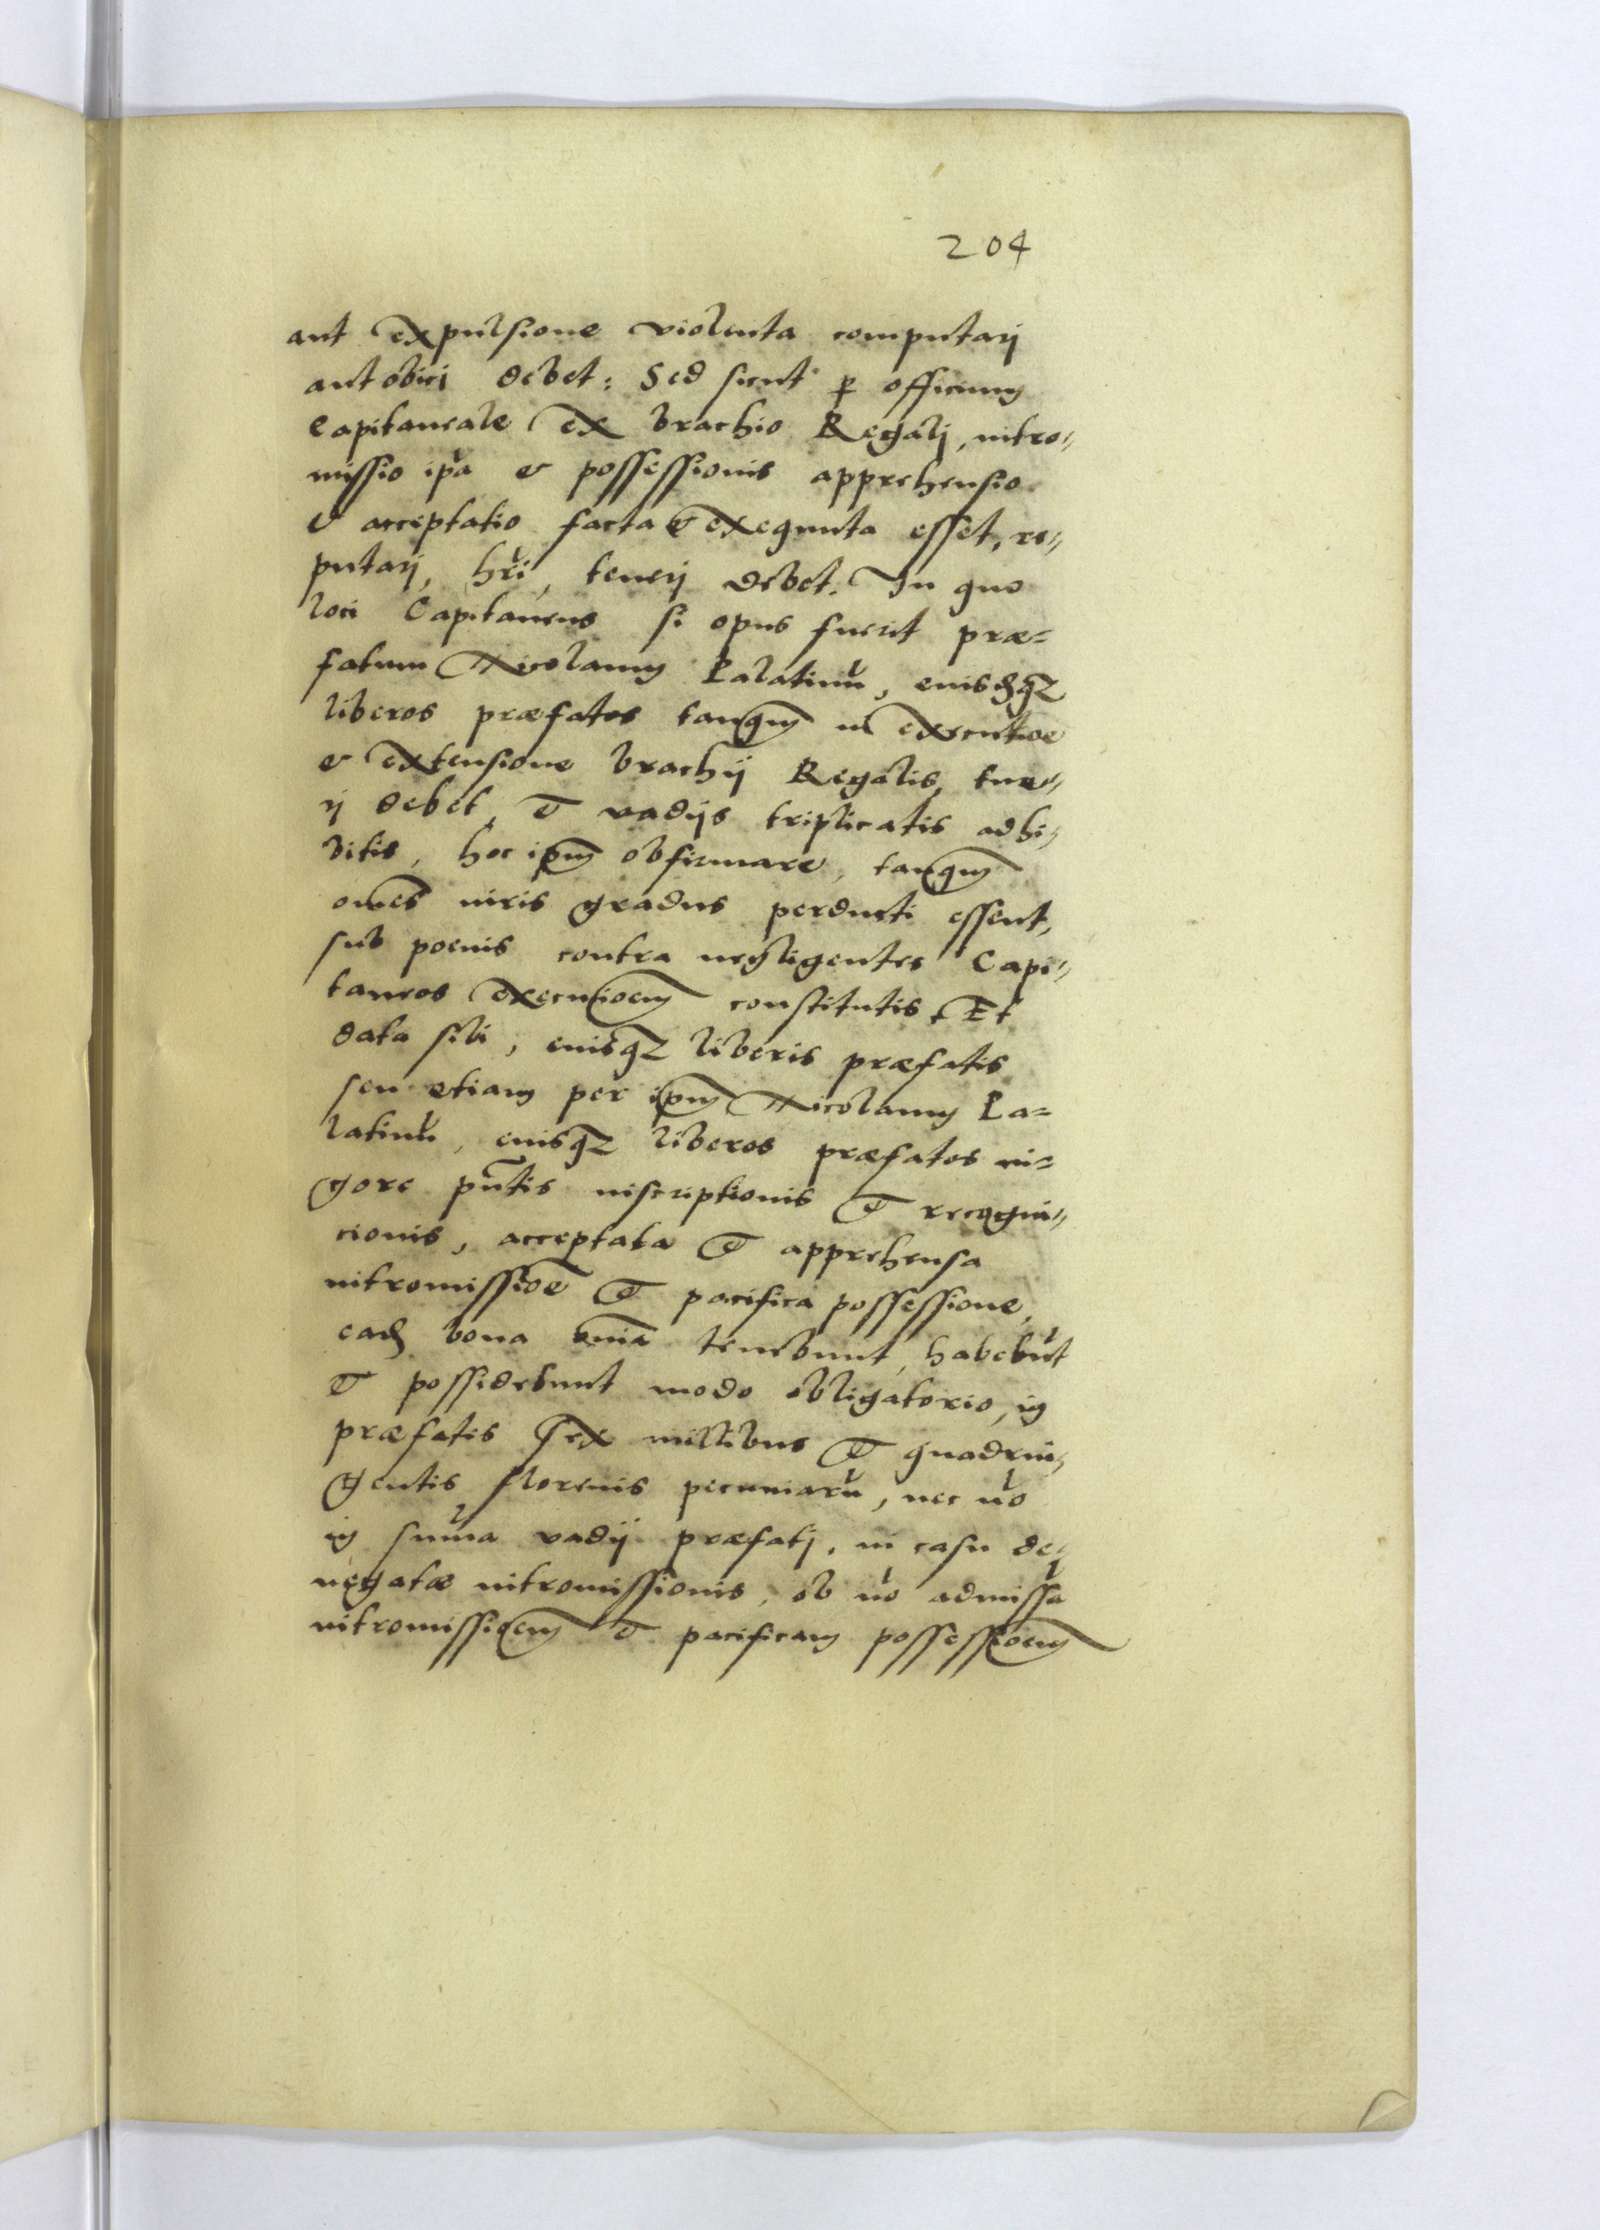 204
aut expulsione violenta computarj
aut obiici debet: Sed sicut ꝑ officium
Capitaneale ex brachio Regalj, intro„
missio ip̃a & possessionis apprehensio
& acceptatio facta & exequuta esset, re„
putarj, hr̃i, tenerj debet. In quo
loci Capitaneus si opus fuerit præ=
fatum Nicolaum Palatinũ, eiusdẽqꝫ
liberos præfatos tanqm̃ in executioe
& extensione brachij Regalis, tue„
rj debet, & vadijs triplicatis adhi„
bitis, hoc ipm̃ obfirmare, tanqm̃
om̃es iuris gradus perducti essent,
sub poenis contra negligentes Capi„
taneos executioem̃ constitutis. Et
data sibi, eiusqꝫ liberis præfatis
seu etiam per ipm̃ Nicolaum Pa=
latinũ, eiusqꝫ liberos præfatos vi=
gore pñtis inscriptionis & recogni„
cionis, acceptata & apprehensa
intromissioẽ & pacifica possessione,
eadẽ bona om̃ia tenebunt, habebũt
& possidebunt modo obligatorio, in
præfatis sex millibus & quadrin„
gentis florenis pecuniarũ, nec ũo
in sum̃a vadij præfatj, in casu de„
negatæ intromissionis, ob ũo admissã
intromissioem̃ & pacificam possessioem̃